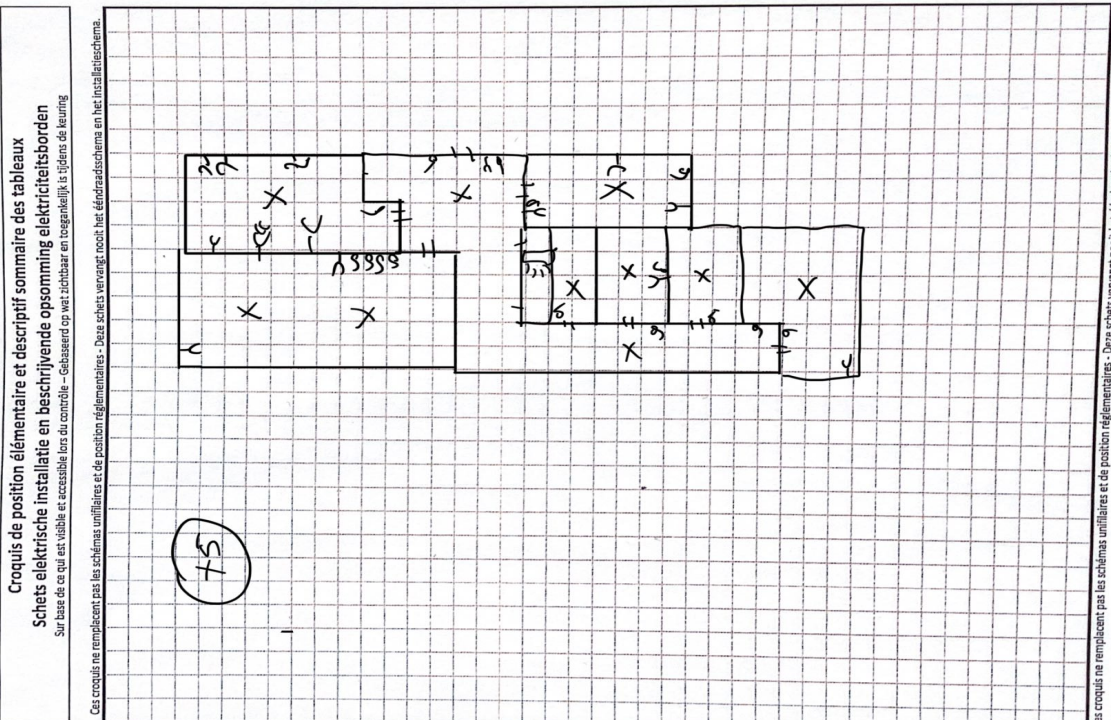 Croquis de position élémentaire et descriptif sommaire des tableaux
Schets elektrische installatie en beschrijvende opsomming elektriciteitsborden
Sur base de ce qui est visible et accessible lors du contrôle – Gebaseerd op wat zichtbaar en toegankelijk is tijdens de keuring
Ces croquis ne remplacent pas les schémas unifilaires et de position réglementaires - Deze schets vervangt nooit het ééndraadsschema en het installatieschema.
+5
croquis ne remplacent pas les schémas unifilaires et de position réglementaires - Deze schets